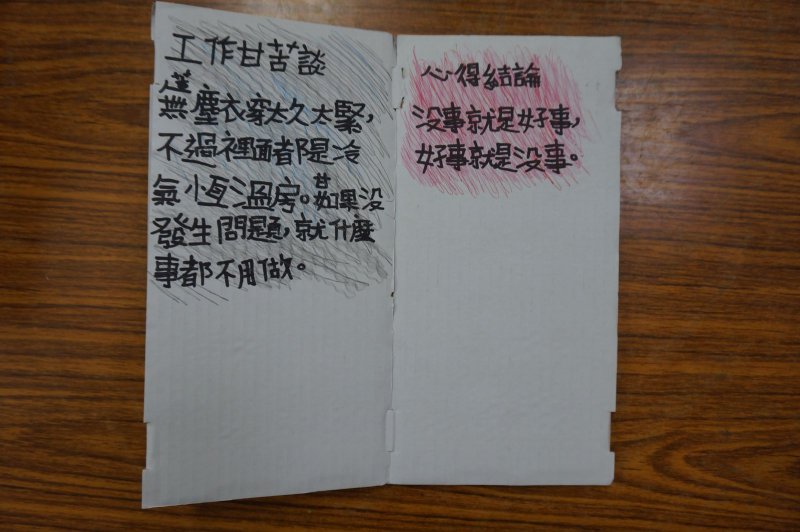 工作甘苦談
苦
無塵衣穿太久太緊，
不過裡面都是冷
氣恆溫房。甘如果没
發生問題，就什麼
事都不用做。
心得結論
没事就是好事，
好事就是没事。